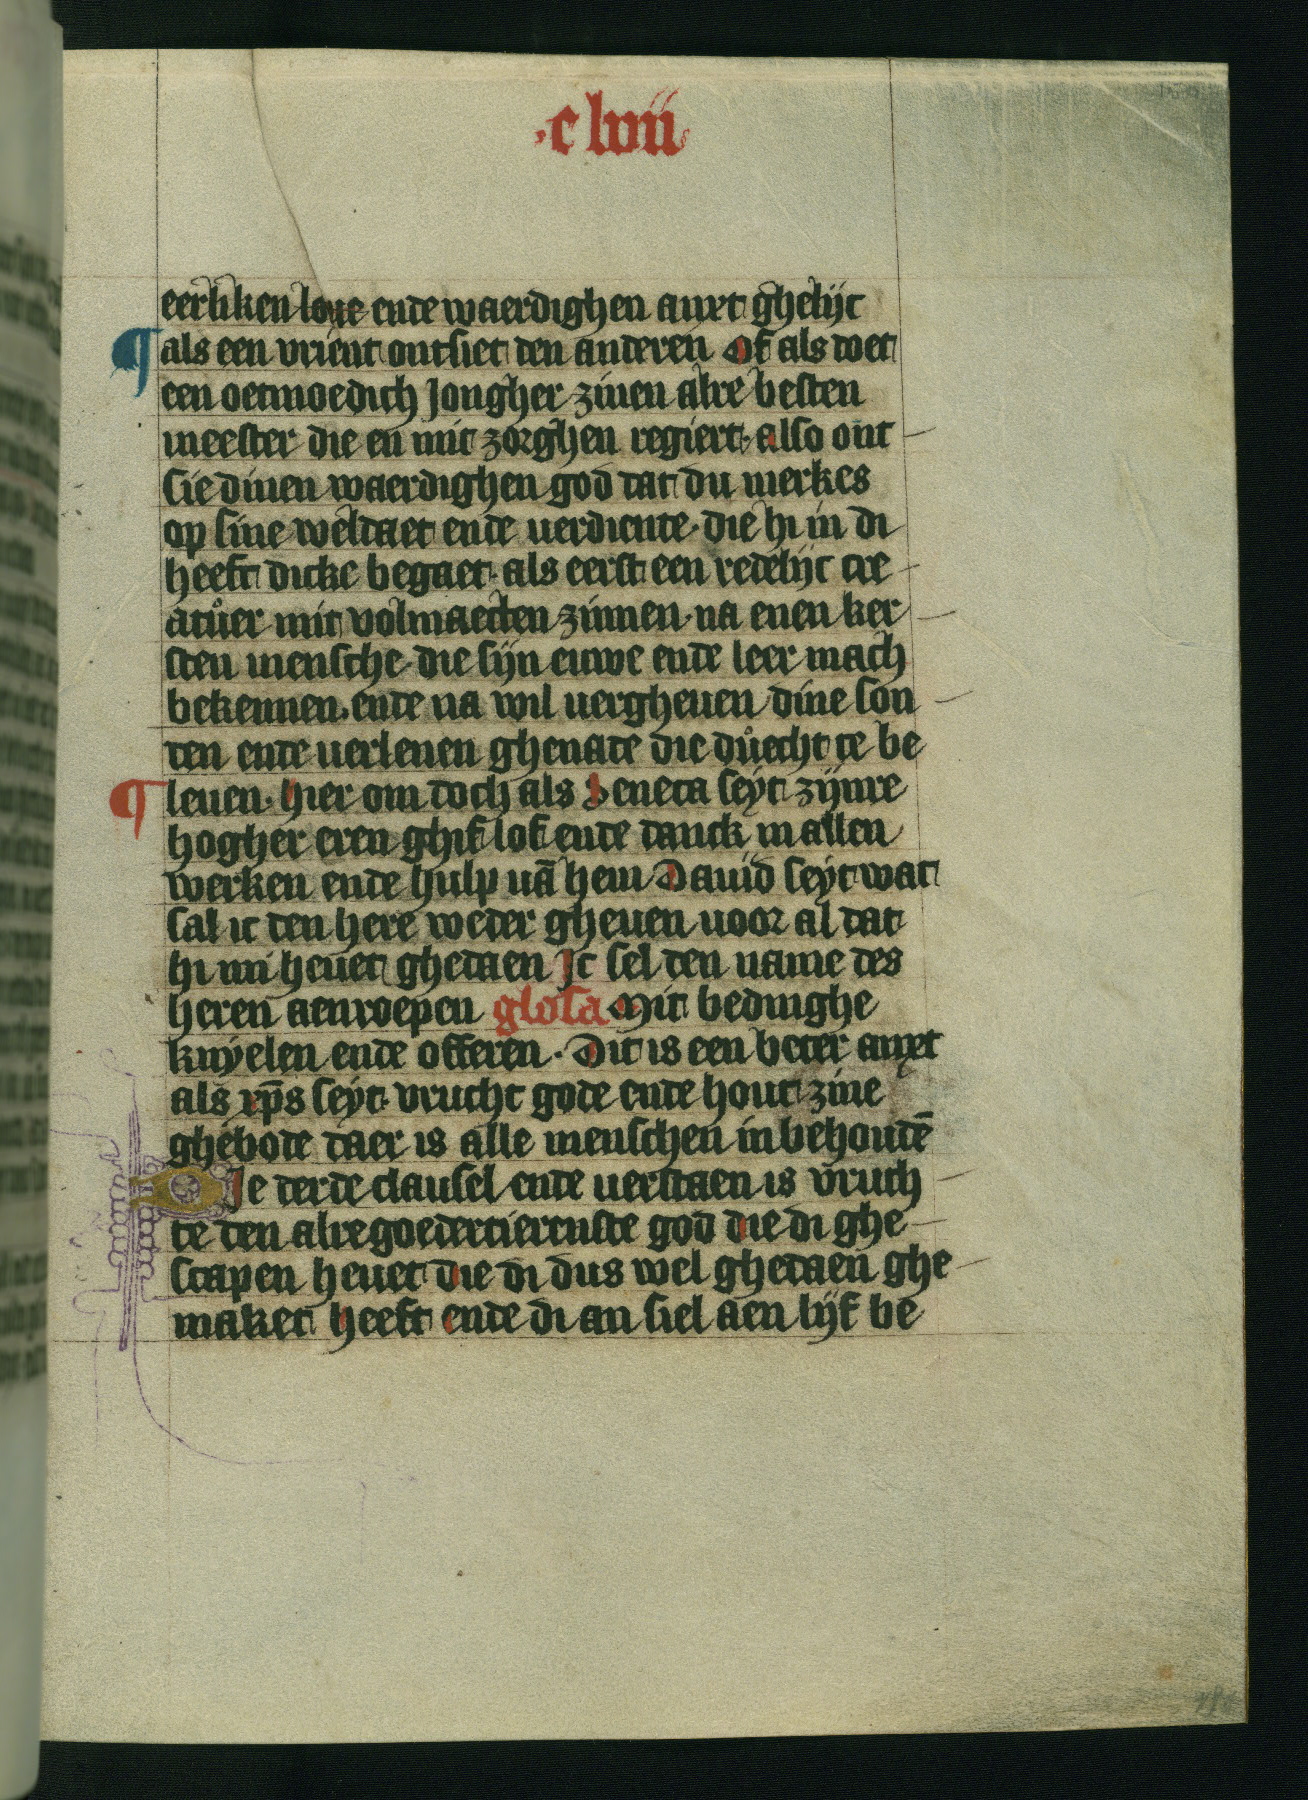 ·clvii·
eerliken love ende waerdighen anxt ghelijc
¶ als een vrient ontsiet den anderen Of als doet
een oetmoedich Jongher zinen alre besten
meester die en mit zorghen regiert· also ont
sie dinen waerdighen god dat du merkes
op sine weldaet ende verdiente· die hi in di
heeft dicke begaet· als eerst een redelijc cre
atůer mit volmaecten zinnen· na enen ker
sten mensche· die sijn euwe ende leer mach
bekennen· ende na wil vergheven dine son
den ende verlenen ghenade die důecht te be
¶ leven· hier om doch als Seneca seyt zijnre
hogher eren ghif lof ende danck in allen
werken ende hulp vā hem David seyt wat
sal ic den here weder gheven voor al dat
hi mi hevet ghedaen Ic sel den name des
heren aenroepen glosa Mit bedinghe
knyelen ende offeren· Dit is een beter anxt
als xp̄s seyt· vrucht gode ende hout zine
ghebode daer is alle menschen in behoudē
De derde clausel ende verstaen is vruch
te den alregoedertiernste god die di ghe
scapen hevet die di dus wel ghedaen ghe
maket heeft ende di an siel aen lijf be